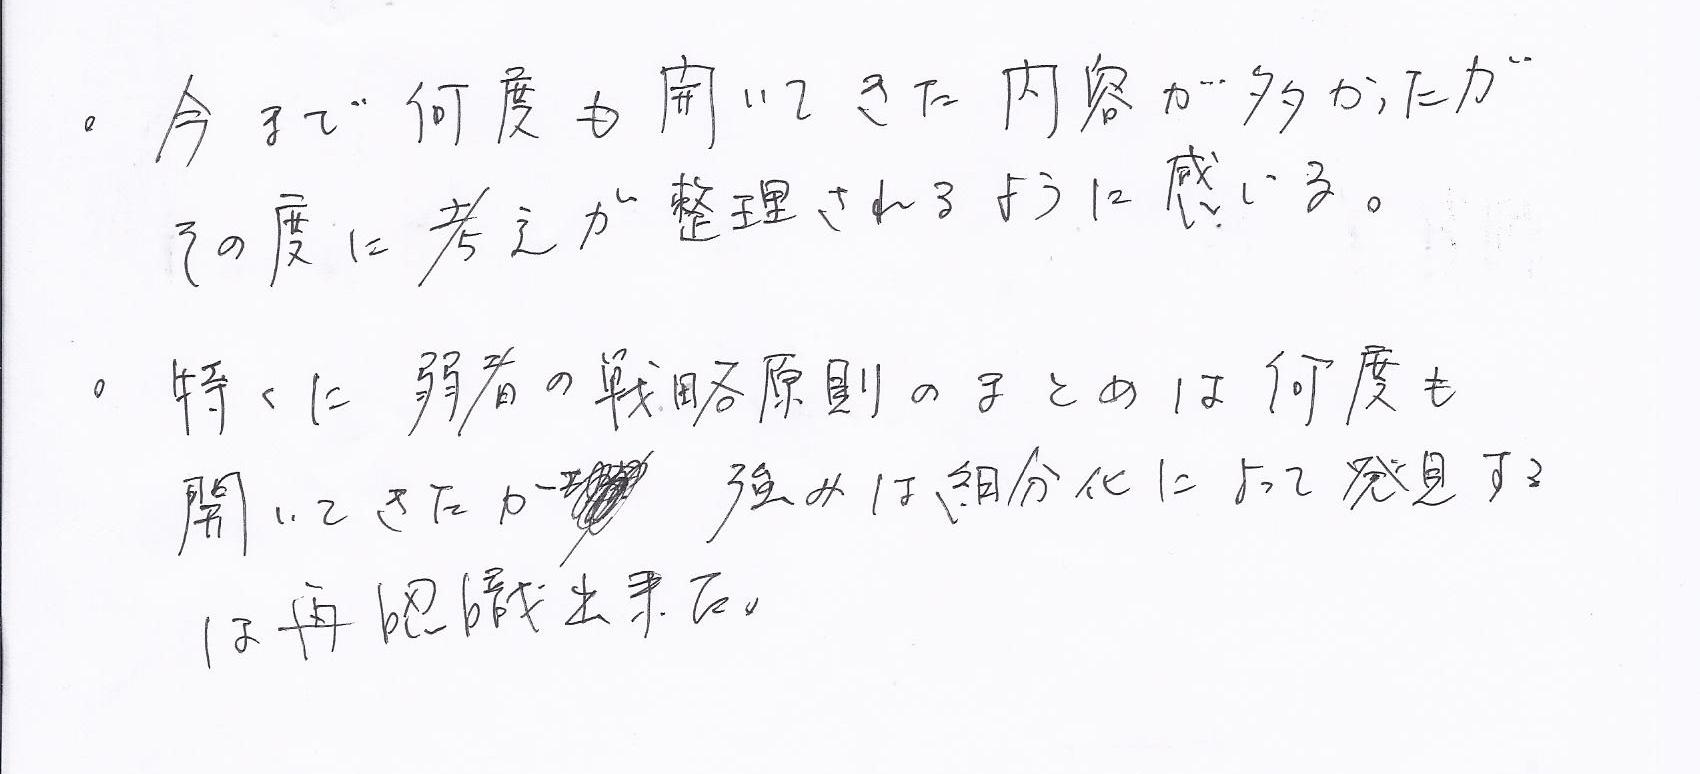 。今まで何度も聞いてきた内容が多かったが
その度に考えが整理されるように感じる。
。特くに弱者の戦略原則のまとめは何度も
聞いてきたが 強みは細分化によって発見する
は再認識出来た。